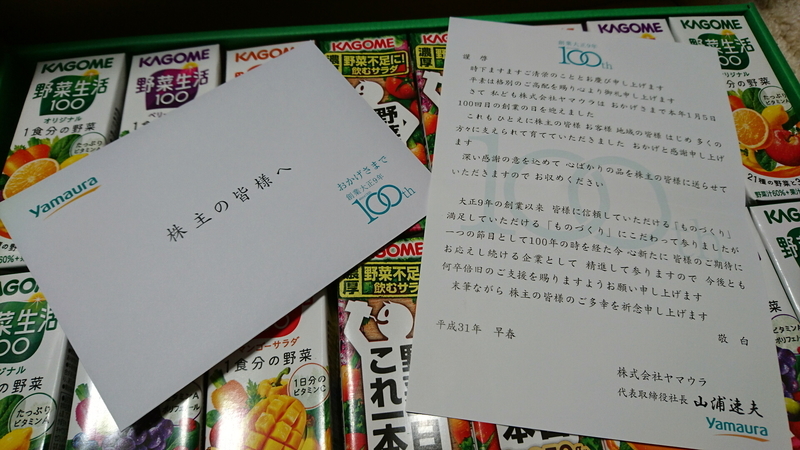 KAGOME
野菜生活
100
オリジナル
1食分の野菜
たっぷり
KAGOME
野菜生活
100
KAGOME
KAGOME
野菜不足に!
飲むサラダ
濃厚
KAGOME
KAGOME
たっぷり
21種の野菜と
Yamaura
株主の皆様へ
おかげさまで
創業大正9年
100th
創業大正9年
100th
謹 啓
時下ますますご清栄のこととお慶び申し上げます
平素は格別のご高配を賜り心より御礼申し上げます
さて 私ども株式会社ヤマウラは おかげさまで本年1月5日
100回目の創業の日を迎えました
これも ひとえに株主の皆様 お客様 地域の皆様 はじめ 多くの
方々に支えられて育てていただきました おかげと感謝申し上げ
ます
深い感謝の意を込めて 心ばかりの品を株主の皆様に送らせて
いただきますので お収めください
大正9年の創業以来 皆様に信頼していただける「ものづくり」
満足していただける「ものづくり」にこだわって参りましたが
一つの節目として100年の時を経た今 心新たに 皆様のご期待に
お応えし続ける企業として 精進して参りますので 今後とも
何卒倍旧のご支援を賜りますようお願い申し上げます
末筆ながら 株主の皆様のご多幸を祈念申し上げます
敬 白
平成31年 早春
株式会社ヤマウラ
代表取締役社長 山浦速夫
Yamaura
KAGOME
濃厚
野菜不足に!
飲むサラダ
これ一本
1食分の野菜
1日分の
ビタミン
たっぷり